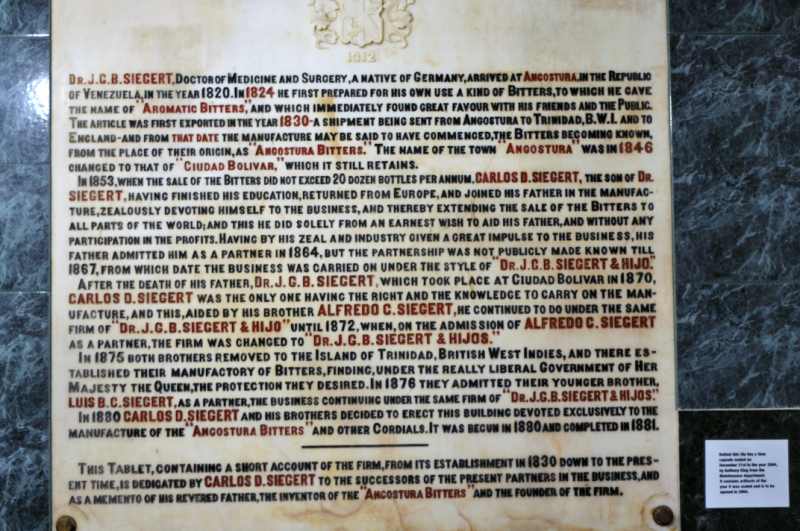 1812
DR. J.G.B. SIEGERT, DOCTOR OF MEDICINE AND SURGERY, A NATIVE OF GERMANY, ARRIVED AT ANGOSTURA, IN THE REPUBLIC
OF VENEZUELA, IN THE YEAR 1820. IN 1824 HE FIRST PREPARED FOR HIS OWN USE A KIND OF BITTERS, TO WHICH HE GAVE
THE NAME OF "AROMATIC BITTERS," AND WHICH IMMEDIATELY FOUND GREAT FAVOUR WITH HIS FRIENDS AND THE PUBLIC.
THE ARTICLE WAS FIRST EXPORTED IN THE YEAR 1830-A SHIPMENT BEING SENT FROM ANGOSTURA TO TRINIDAD, B.W.I. AND TO
ENGLAND-AND FROM THAT DATE THE MANUFACTURE MAY BE SAID TO HAVE COMMENCED, THE BITTERS BECOMING KNOWN,
FROM THE PLACE OF THEIR ORIGIN, AS "ANGOSTURA BITTERS." THE NAME OF THE TOWN "ANGOSTURA" WAS IN 1846
CHANGED TO THAT OF "CIUDAD BOLIVAR," WHICH IT STILL RETAINS.
IN 1853, WHEN THE SALE OF THE BITTERS DID NOT EXCEED 20 DOZEN BOTTLES PER ANNUM, CARLOS D. SIEGERT, THE SON OF DR.
SIEGERT, HAVING FINISHED HIS EDUCATION, RETURNED FROM EUROPE, AND JOINED HIS FATHER IN THE MANUFAC-
TURE, ZEALOUSLY DEVOTING HIMSELF TO THE BUSINESS, AND THEREBY EXTENDING THE SALE OF THE BITTERS TO
ALL PARTS OF THE WORLD; AND THIS HE DID SOLELY FROM AN EARNEST WISH TO AID HIS FATHER, AND WITHOUT ANY
PARTICIPATION IN THE PROFITS. HAVING BY HIS ZEAL AND INDUSTRY GIVEN A GREAT IMPULSE TO THE BUSINESS, HIS
FATHER ADMITTED HIM AS A PARTNER IN 1864, BUT THE PARTNERSHIP WAS NOT PUBLICLY MADE KNOWN TILL
1867, FROM WHICH DATE THE BUSINESS WAS CARRIED ON UNDER THE STYLE OF "DR. J.G.B. SIEGERT & HIJO."
AFTER THE DEATH OF HIS FATHER, DR. J.G.B. SIEGERT, WHICH TOOK PLACE AT CIUDAD BOLIVAR IN 1870,
CARLOS D. SIEGERT WAS THE ONLY ONE HAVING THE RIGHT AND THE KNOWLEDGE TO CARRY ON THE MAN-
UFACTURE, AND THIS, AIDED BY HIS BROTHER ALFREDO C. SIEGERT, HE CONTINUED TO DO UNDER THE SAME
FIRM OF "DR. J.G.B. SIEGERT & HIJO" UNTIL 1872, WHEN, ON THE ADMISSION OF ALFREDO C. SIEGERT
AS A PARTNER, THE FIRM WAS CHANGED TO "DR. J.G.B. SIEGERT & HIJOS."
IN 1875 BOTH BROTHERS REMOVED TO THE ISLAND OF TRINIDAD, BRITISH WEST INDIES, AND THERE ES-
TABLISHED THEIR MANUFACTORY OF BITTERS, FINDING, UNDER THE REALLY LIBERAL GOVERNMENT OF HER
MAJESTY THE QUEEN, THE PROTECTION THEY DESIRED. IN 1876 THEY ADMITTED THEIR YOUNGER BROTHER,
LUIS B. C. SIEGERT, AS A PARTNER, THE BUSINESS CONTINUING UNDER THE SAME FIRM OF "DR. J.G.B. SIEGERT & HIJOS."
IN 1880 CARLOS D. SIEGERT AND HIS BROTHERS DECIDED TO ERECT THIS BUILDING DEVOTED EXCLUSIVELY TO THE
MANUFACTURE OF THE "ANGOSTURA BITTERS" AND OTHER CORDIALS. IT WAS BEGUN IN 1880 AND COMPLETED IN 1881.
THIS TABLET, CONTAINING A SHORT ACCOUNT OF THE FIRM, FROM ITS ESTABLISHMENT IN 1830 DOWN TO THE PRES-
ENT TIME, IS DEDICATED BY CARLOS D. SIEGERT TO THE SUCCESSORS OF THE PRESENT PARTNERS IN THE BUSINESS, AND
AS A MEMENTO OF HIS REVERED FATHER, THE INVENTOR OF THE "ANGOSTURA BITTERS" AND THE FOUNDER OF THE FIRM.
Behind this tile lies a time
capsule sealed on
December 31st in the year 2004,
by Anthony King from the
Maintenance department.
It contains artifacts of the
year it was sealed and is to be
opened in